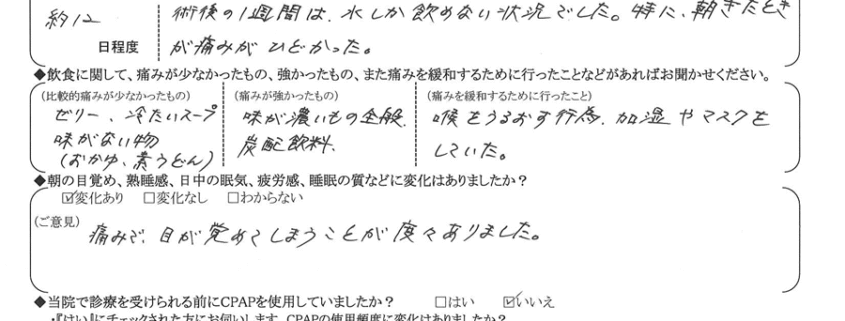 約12
日程度
術後の1週間は、水しか飲めない状況でした。特に、朝きたとき
が痛みがひどかった。
◆飲食に関して、痛みが少なかったもの、強かったもの、また痛みを緩和するために行ったことなどがあればお聞かせください。
(比較的痛みが少なかったもの)
ゼリー、冷たいスープ
味がない物
(おかゆ、素うどん)
(痛みが強かったもの)
味が濃いもの全般、
炭酸飲料、
(痛みを緩和するために行ったこと)
喉をうるおす行為、加湿やマスクを
していた。
◆朝の目覚め、熟睡感、日中の眠気、疲労感、睡眠の質などに変化はありましたか?
☑変化あり □変化なし □わからない
(ご意見)
痛みで、目が覚めてしまうことが度々ありました。
◆当院で診療を受けられる前にCPAPを使用していましたか? □はい ☑いいえ
・『はい』にチェックされた方にお伺いします。CPAPの使用頻度に変化はありましたか?